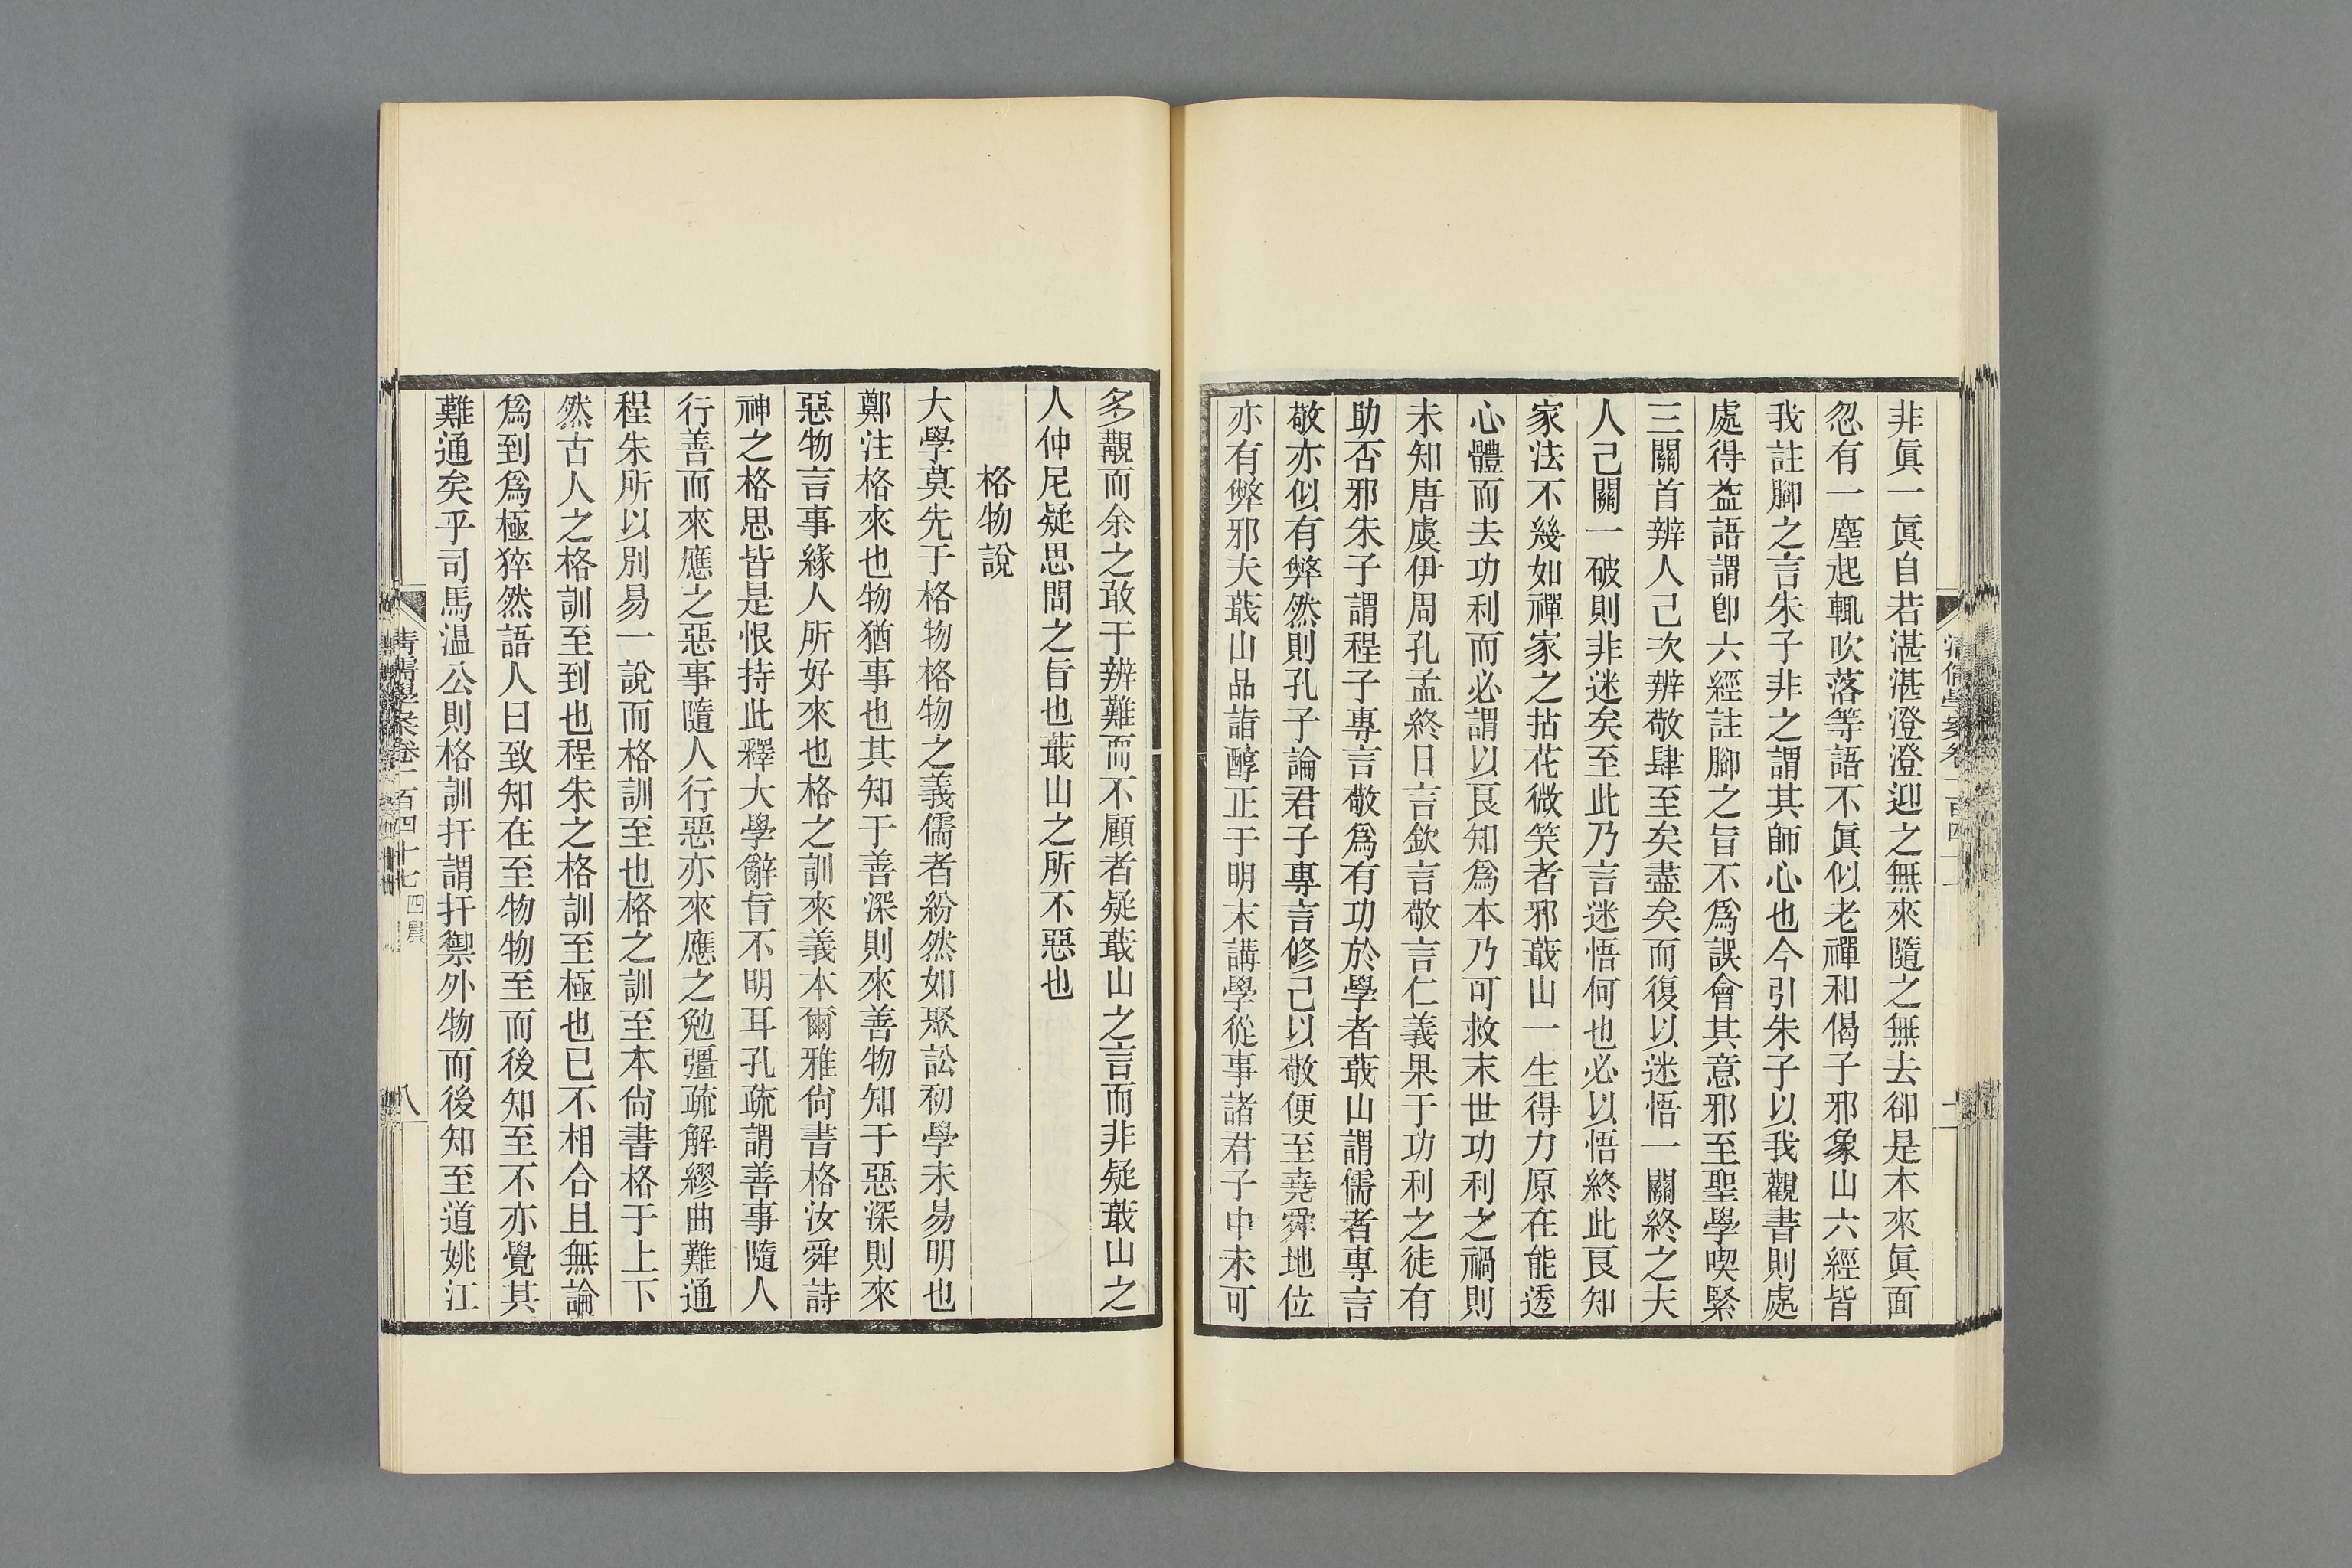 非眞一眞自若湛湛澄澄迎之無來隨之無去卻是本來眞面
忽有一塵起輒吹落等語不眞似老禪和偈子邪象山六經皆
我註腳之言朱子非之謂其師心也今引朱子以我觀書則處
處得益語謂卽六經註腳之旨不爲誤會其意邪至聖學喫緊
三關首辨人己次辨敬肆至矣盡矣而復以迷悟一關終之夫
人己關一破則非迷矣至此乃言迷悟何也必以悟終此良知
家法不幾如禪家之拈花微笑者邪蕺山一生得力原在能透
心體而去功利而必謂以良知爲本乃可救末世功利之禍則
未知唐虞伊周孔孟終日言欽言敬言仁義果于功利之徒有
助否邪朱子謂程子專言敬爲有功於學者蕺山謂儒者專言
敬亦似有弊然則孔子論君子專言修己以敬便至堯舜地位
亦有弊邪夫蕺山品詣醇正于明末講學從事諸君子中未可
多覯而余之敢于辨難而不顧者疑蕺山之言而非疑蕺山之
人仲尼疑思問之旨也蕺山之所不惡也
格物說
大學莫先于格物格物之義儒者紛然如聚訟初學未易明也
鄭注格來也物猶事也其知于善深則來善物知于惡深則來
惡物言事緣人所好來也格之訓來義本爾雅尙書格汝舜詩
神之格思皆是恨持此釋大學辭旨不明耳孔疏謂善事隨人
行善而來應之惡事隨人行惡亦來應之勉彊疏解繆曲難通
程朱所以別易一說而格訓至也格之訓至本尙書格于上下
然古人之格訓至到也程朱之格訓至極也已不相合且無論
爲到爲極猝然語人曰致知在至物物至而後知至不亦覺其
難通矣乎司馬温公則格訓扞謂扞禦外物而後知至道姚江
清儒學案卷一百四十七 四農
八